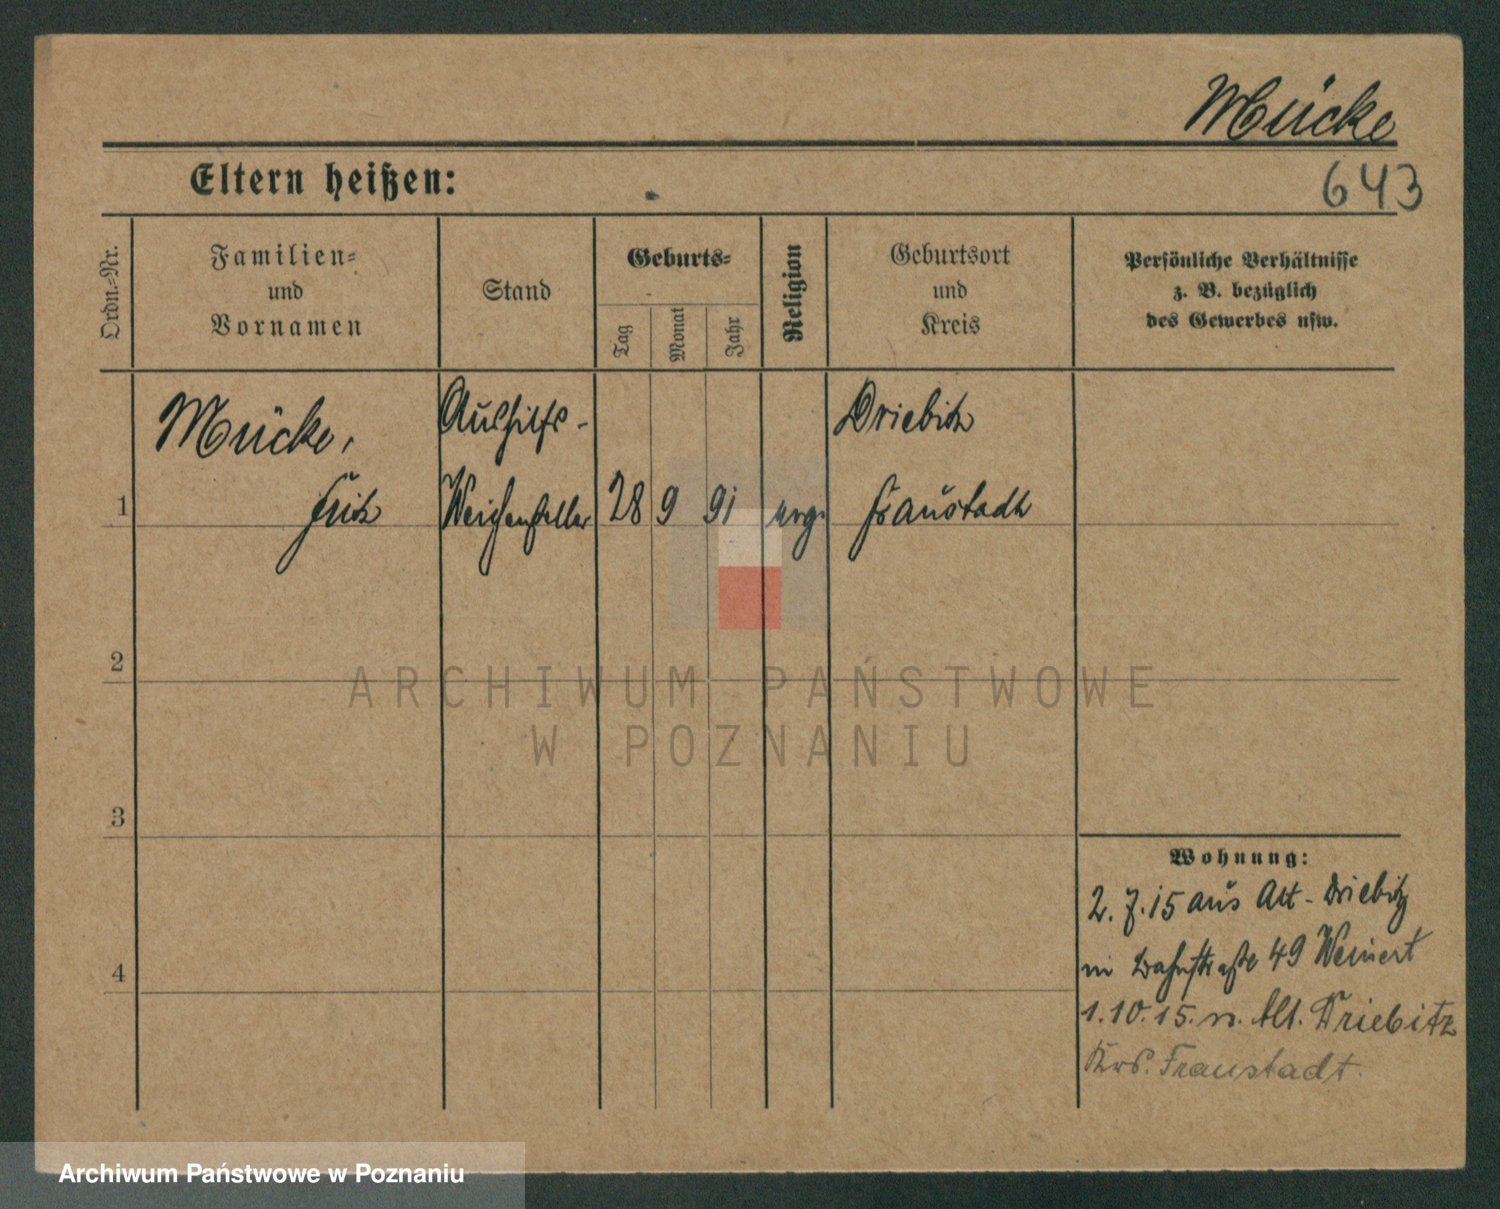 Mücke
643
Eltern heißen:
Ordn.-Nr.
Familien-
und
Vornamen
Stand
Geburts-
Tag
Monat
Jahr
Religion
Geburtsort
und
Kreis
Persönliche Verhältnisse
z. B. bezüglich
des Gewerbes usw.
1
Mücke,
Fritz
Aushilfs-
Weichensteller
28
9
91
evg.
Driebitz
Fraustadt
2
3
4
Wohnung:
2. 7. 15 aus Alt-Driebitz
in Bahnstraße 49 Weinert
1.10.15. n. Alt. Driebitz
Krs. Fraustadt.
ARCHIWUM PAŃSTWOWE
W POZNANIU
Archiwum Państwowe w Poznaniu